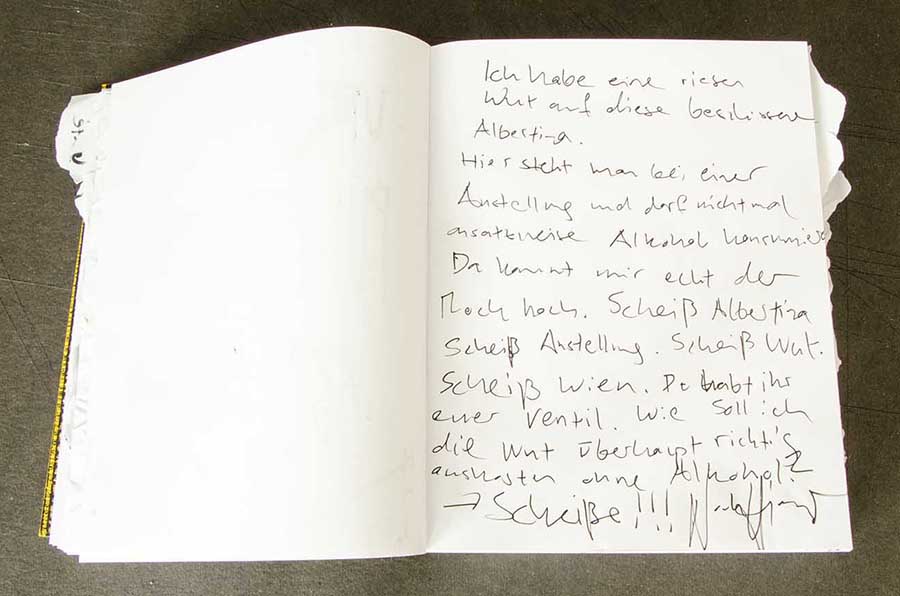 Ich habe eine riesen
Wut auf diese beschissene
Albertina.
Hier steht man bei einer
Anstellung und darf nichtmal
ansatzweise Alkohol konsumieren
Da kommt mir echt der
hoch. Scheiß Albertina
Scheiß Anstellung. Scheiß Wut.
Scheiß Wien. Da habt ihr
euer Ventil. Wie soll ich
die Wut überhaupt richtig
auskosten ohne Alkohol?
→ Scheiße!!!
St. U